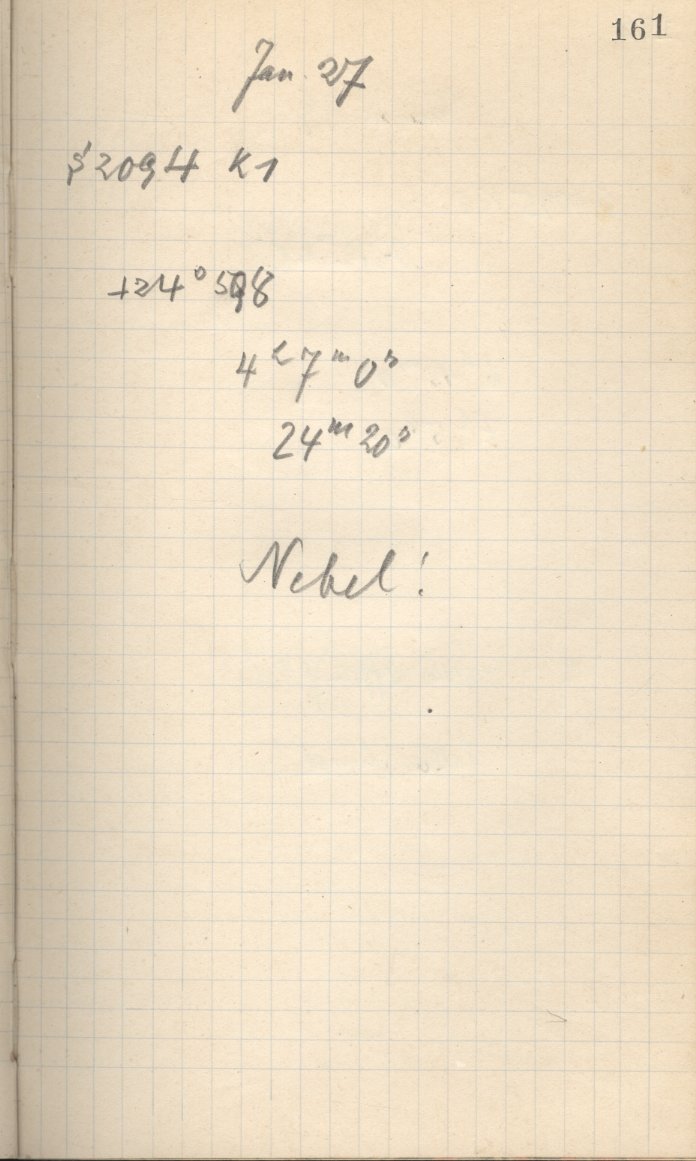 161
Jan. 27
2094 K1
+24° 598
4ʰ 7ᵐ 0ˢ
24ᵐ 20ˢ
Nebel!